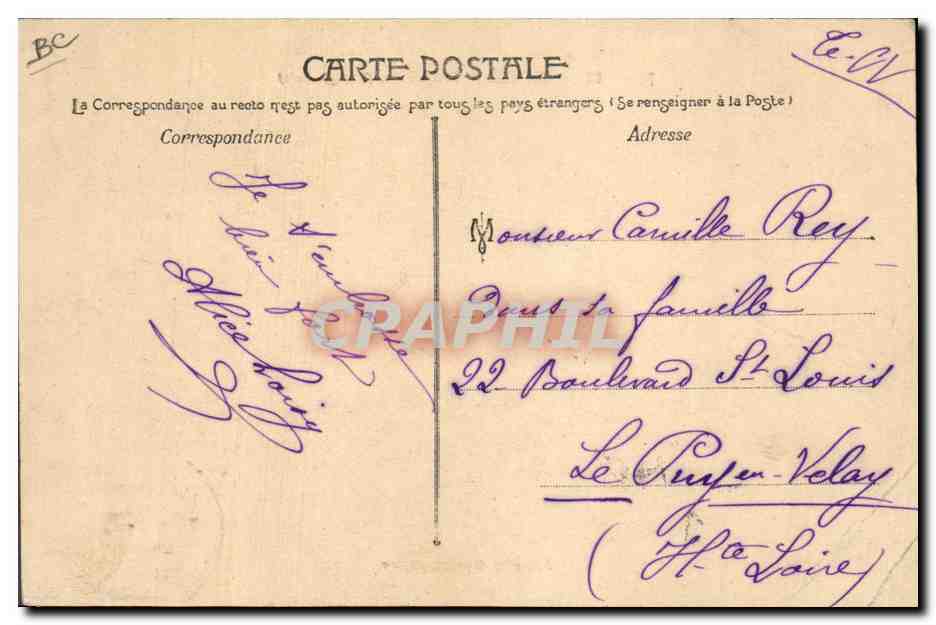 BC
CARTE POSTALE
La Correspondance au recto n'est pas autorisée par tous les pays étrangers (Se renseigner à la Poste)
Correspondance
Adresse
Je t'embrasse
bien fort
Alice
Monsieur Camille Rey
Dans sa famille
22 Boulevard St Louis
Le Puy en-Velay
(Hte Loire)
CRAPHIL